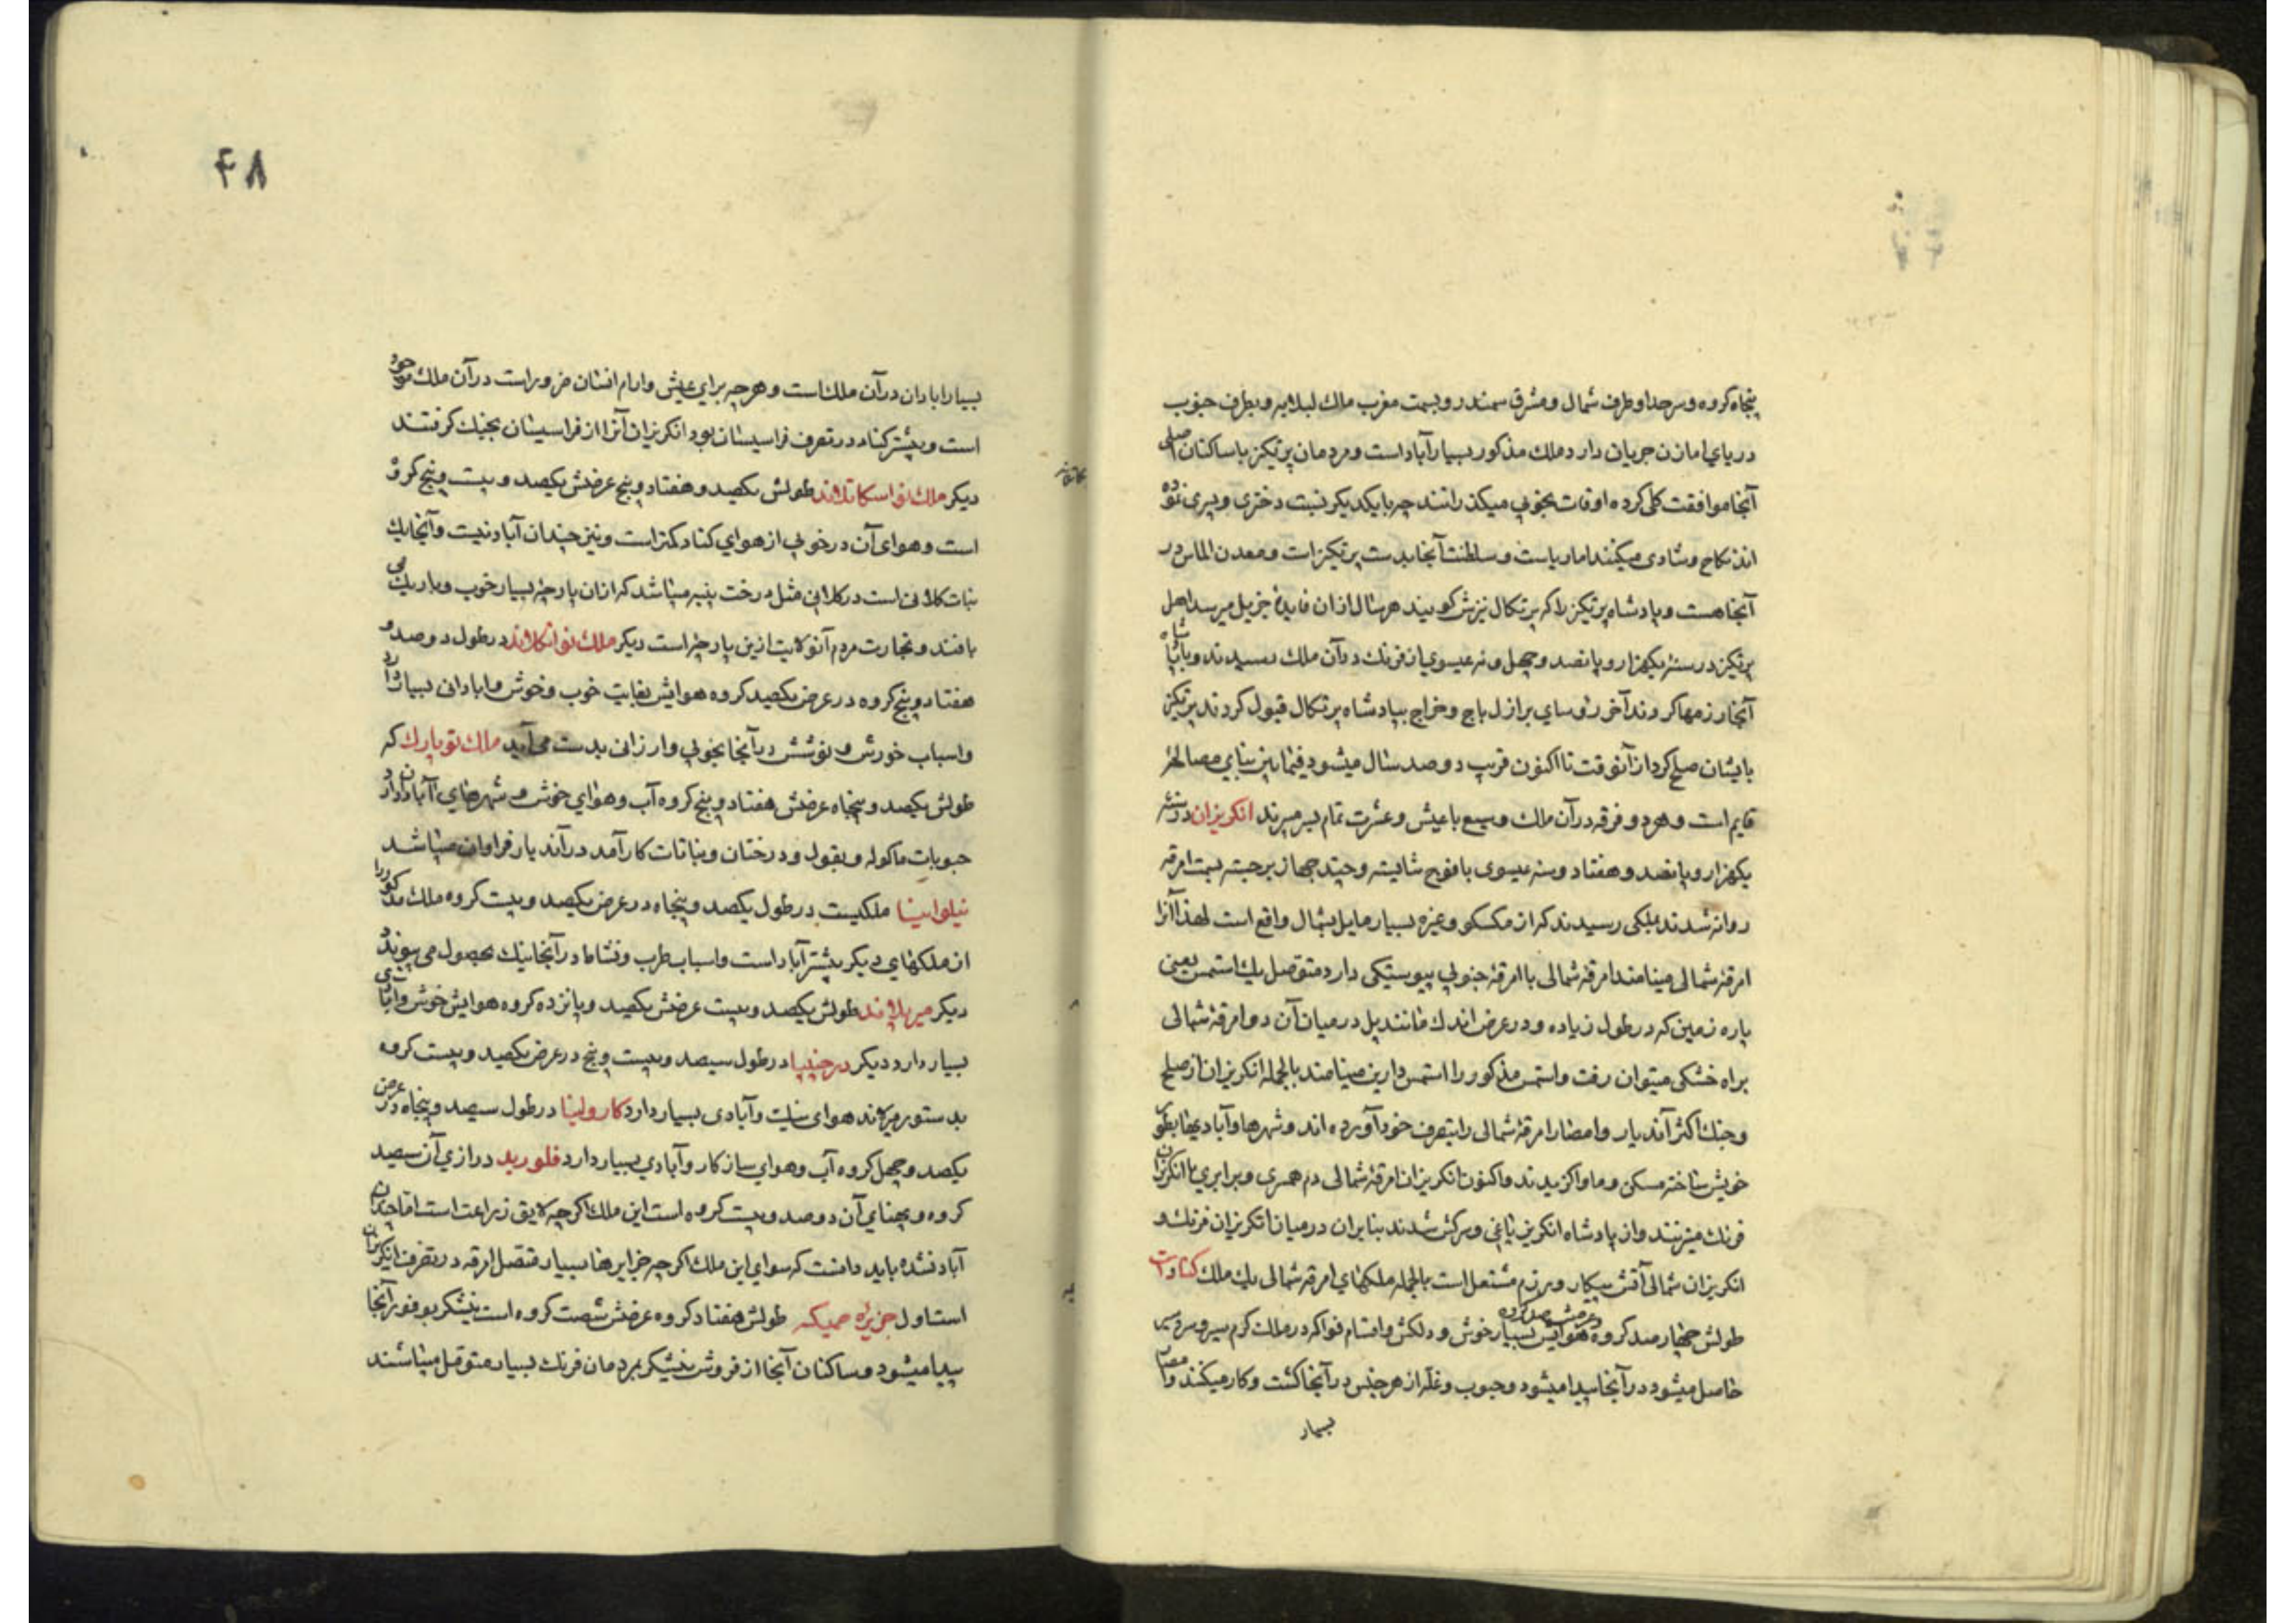 پنجاه کروه و سرحد او طرف شمال و مشرق سمندر و بسمت مغرب ملك لبلامیر و بطرف جنوب
دریای امازن جریان دارد ملك مذکور بسیار آباد است و مردمان پرتکز با ساکنان اصلی
آنجا موافقت کلی کرده اوقات بخوبی میکذرانند چه با یکدیکر نسبت دختری و پسری نموده
اند نکاح و شادی میکنند اما ریاست و سلطنت آنجا بدست پرتکیزات و معدن الماس در
آنجا هست و پادشاه پرتکیز را که پرتکال نیزش کویند هر سال از ان فایدهٔ جزیل میرسد اهل
پرتکیز در سنهٔ یکهزار و پانصد و چهل و نه عیسوی از فرنك در آن ملك رسیدند و با پادشاه
آنجا رزمها کردند آخر رؤسای برازل باج و خراج بپادشاه پرتکال قبول کردند پرتکیز
بایشان صلح کرد از آنوقت تا اکنون قریب دو صد سال میشود فیمابین بنای مصالحهٔ
قایم است و هر دو فرقه در آن ملك وسیع با عیش و عشرت تمام بسر میبرند انکریزان در سنهٔ
یکهزار و پانصد و هفتاد و سه عیسوی با فوج شایسته و چند جهاز برجسته بسمت امرقه
روانه شدند بملکی رسیدند که از مکسکو و غیره بسیار مایل بشمال واقع است لهذا آنرا
امرقهٔ شمالی مینامند امرقهٔ شمالی با امرقهٔ جنوبی پیوستکی دارد متوصل بیك استمس یعنی
پاره زمین که در طول زیاده و در عرض اندك مانند پل در میان آن دو امرقهٔ شمالی
براه خشکی میتوان رفت و استمس مذکور را استمس دارین مینامند بالجمله انکریزان از صلح
و جنك اکثر آندیار و امصار امرقهٔ شمالی را بتصرف خود آورده اند و شهرها و آبادیها بطور
خویش ساخته مسکن و ماوا کزیدند و اکنون انکریزان امرقهٔ شمالی دم همسری و برابری با انکریزان
فرنك میزنند و از پادشاه انکریز یاغی و سرکش شدند بنابران در میان انکریزان فرنك و
انکریزان شمالی آتش پیکار و رزم مشتعل است بالجمله ملکهای امرقه شمالی یك ملك کناد است
طولش چهار صد کروه و عرضش صد کروه هوایش بسیار خوش و دلکش و اقسام فواکه در ممالك کرم سیر و سردسیر
حاصل میشود در آنجا پیدا میشود و حبوب و غله از هر جنس در آنجا کشت و کار میکنند و امصار
بسیار
۴۸
بسیار ابادان در آن ملك است و هرچه برای عیش و ارام انسان ضرور است در آن ملك موجود
است و پیشتر کناد در تصرف فراسیسان بود انکریزان آنرا از فراسیسان بجنك کرفتند
دیکر ملك نواسکاتلاند طولش یکصد و هفتاد و پنج عرضش یکصد و بیست و پنج کروه
است و هوای آن در خوبی از هوای کناد کمتر است و نیز چندان آباد نیست و آنجا یك
نبات کلانی است در کلانی مثل درخت پنبه میباشد که از ان پارچهٔ بسیار خوب و باریك می
بافند و تجارت مردم آنولایت ازین پارچه است دیکر ملك نوانکلاند در طول دو صد و
هفتاد و پنج کروه در عرض یکصد کروه هوایش بغایت خوب و خوش و ابادانی بسیار دارد
و اسباب خورش و نوشش در آنجا بخوبی و ارزانی بدست می آید ملك نویارك که
طولش یکصد و پنجاه عرضش هفتاد و پنج کروه آب و هوای خوش و شهرهای آبادان دارد
حبوبات ماکوله و بقول و درختان و نباتات کارآمد در آندیار فراوان میباشد
نیلوانیسا ملکیست در طول یکصد و پنجاه در عرض یکصد و بیست کروه ملك مذکور را
از ملکهای دیکر بیشتر آباد است و اسباب طرب و نشاط در آنجا نیك بحصول می پیوندد
دیکر میریلاند طولش یکصد و بیست عرضش یکصد و پانزده کروه هوایش خوش و آبادی
بسیار دارد دیکر ورجنیا در طول سیصد و بیست و پنج در عرض یکصد و بیست کروه
بدستور میرلاند هوای نیك و آبادی بسیار دارد کارولینا در طول سیصد و پنجاه در عرض
یکصد و چهل کروه آب و هوای سازکار و آبادی بسیار دارد فلورید درازی آن سیصد
کروه و پهنای آن دو صد و بیست کروه است این ملك اکرچه لایق زراعت است اما چندان
آباد نشده باید دانست که سوای این ملك اکرچه جزایرها بسیار متصل امرقه در تصرف انکریزان
است اول جزیره جمیکه طولش هفتاد کروه عرضش شصت کروه است نیشکر بوفور آنجا
پیدا میشود و ساکنان آنجا از فروش نیشکر بمردمان فرنك بسیار متوصل میباشند